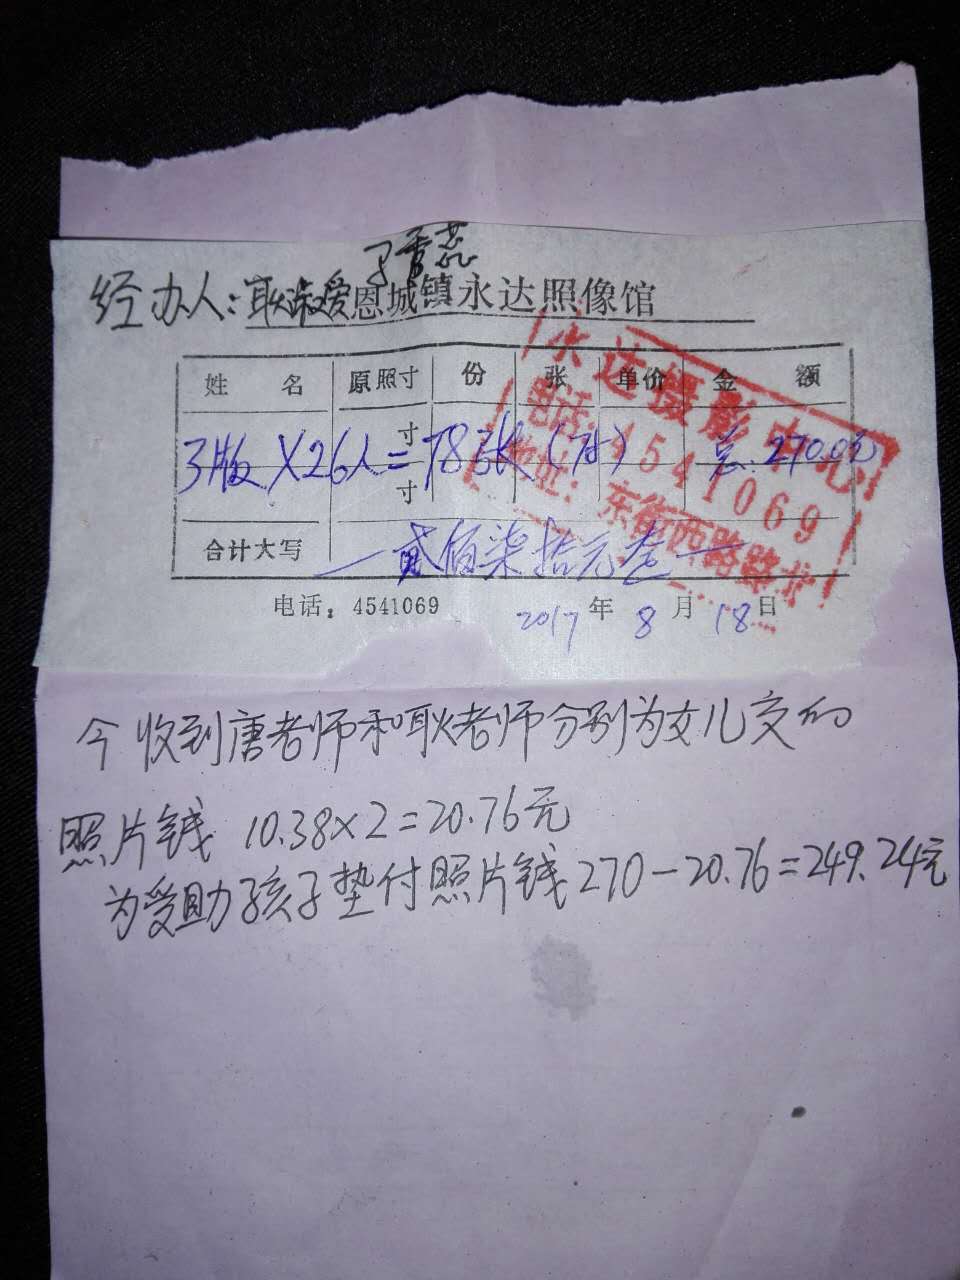 经办人:耿
恩城镇永达照像馆
姓 名 原照寸 份 张 单价 金 额
寸
3版×26人=78张(7寸) 总:270.0元
寸
合计大写 贰佰柒拾元整
电话:4541069 2017年8月18日
永达摄影中心
电话:4541069
地址:东街西路路北
今收到唐老师和耿老师分别为女儿交的
照片钱 10.38×2=20.76元
为受助孩子垫付照片钱270-20.76=249.24元